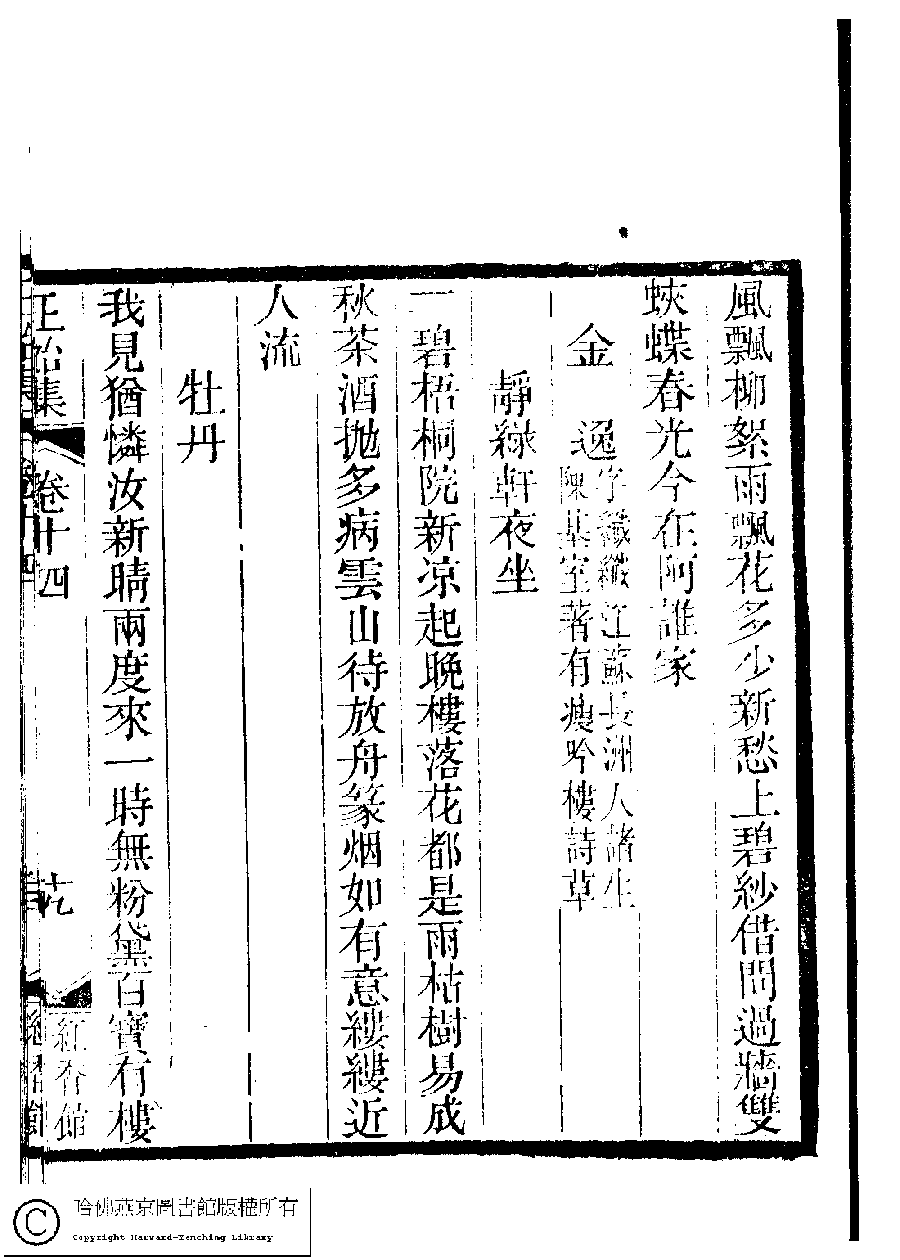 風飄柳絮雨飄花多少新愁上碧紗借問過牆雙
蛺蝶春光今在阿誰家
金逸字纖纖江蘇長洲人諸生
陳基室著有瘦吟樓詩草
靜綠軒夜坐
一碧梧桐院新凉起晚樓落花都是雨枯樹易成
秋茶酒抛多病雲山待放舟篆烟如有意縷縷近
人流
牡丹
我見猶憐汝新晴兩度來一時無粉黛百寶有樓
正始集 卷十四 紅香館
哈佛燕京圖書館版權所有
Copyright Harvard-Yenching Library